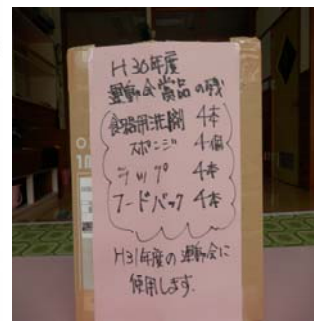 H30年度
運動会賞品の残
食器用洗剤 4本
スポンジ 4個
ラップ 4本
フードパック 4本
H31年度の運動会に
使用します.